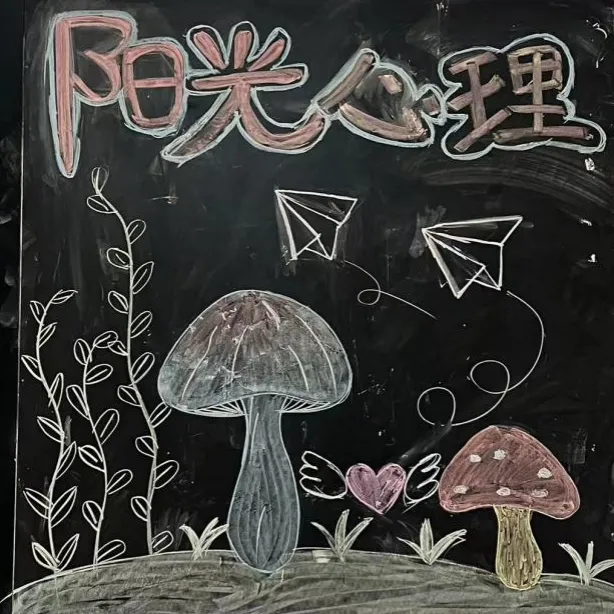 阳光心理